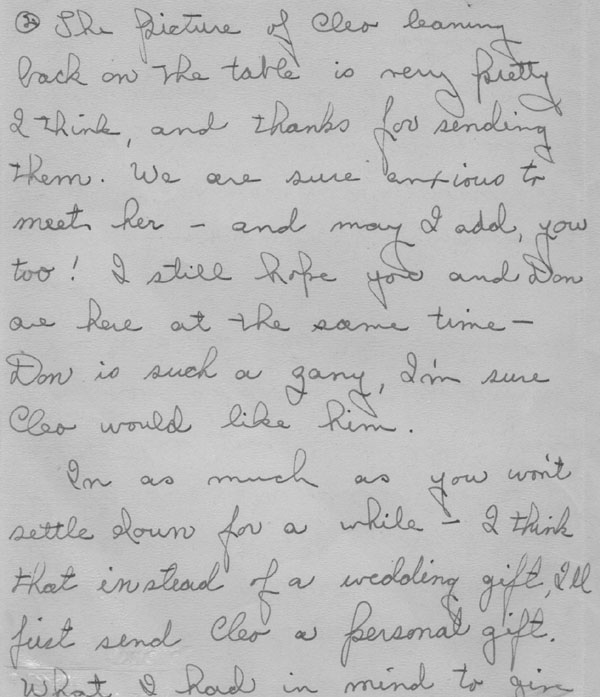 ② The picture of Cleo leaning
back on the table is very pretty
I think, and thanks for sending
them. We are sure anxious to
meet her - and may I add, you
too! I still hope you and Don
are here at the same time -
Don is such a zany, I'm sure
Cleo would like him.
In as much as you won't
settle down for a while - I think
that instead of a wedding gift, I'll
just send Cleo a personal gift.
What I had in mind to give